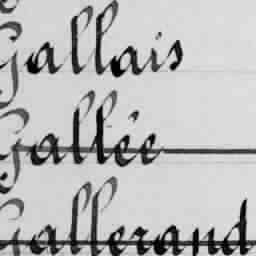 Gallais
Gallée
Gallerand